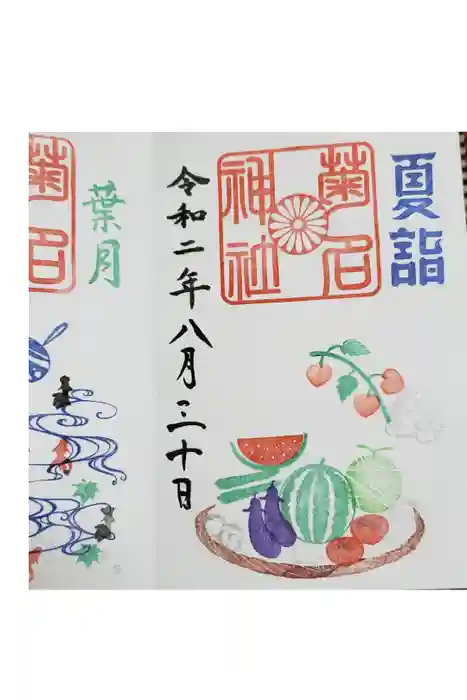 夏詣
菊名
神社
令和二年八月三十日
葉月
菊名